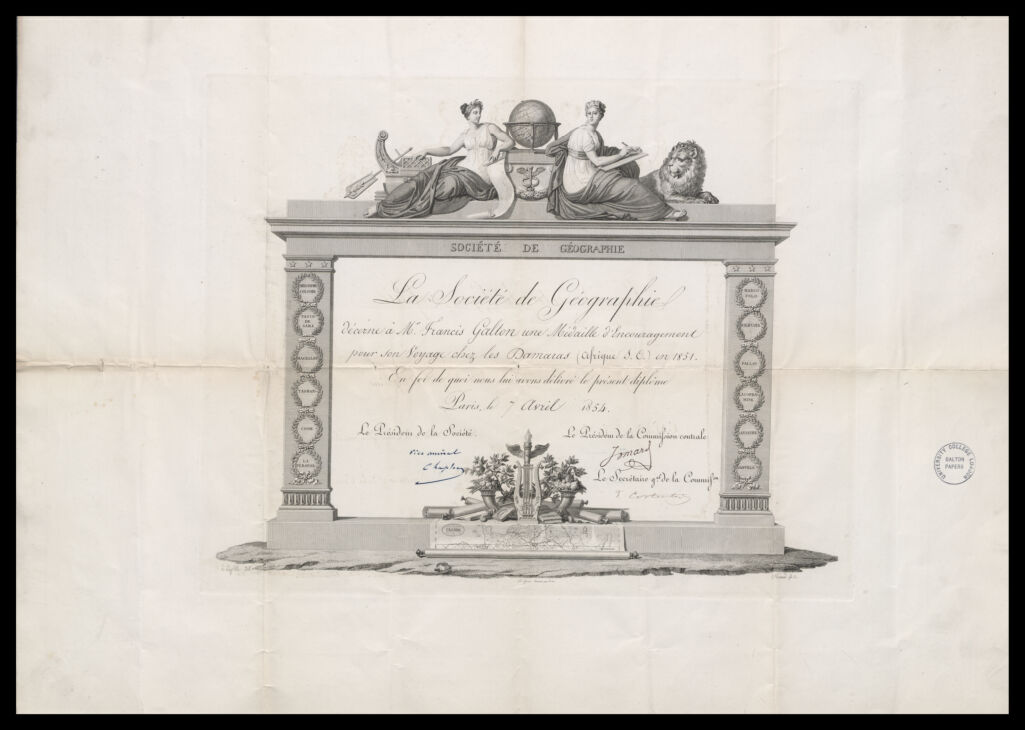 SOCIÉTÉ DE GÉOGRAPHIE
La Société de Géographie
décerne à Mr. Francis Galton une Médaille d'Encouragement
pour son Voyage chez les Damaras (Afrique S. E.) en 1851.
En foi de quoi nous lui avons délivré le présent diplôme
Paris, le 7 Avril 1854.
Le Président de la Société.
Le Président de la Commission centrale
Jomard
Le Secrétaire gal de la Commisson
VASCO
DE
GAMA
MAGELLAN
TASMAN
COOK
LA
PÉROUSE
MARCO
POLO
PALLAS
UNIVERSITY COLLEGE LONDON
GALTON
PAPERS